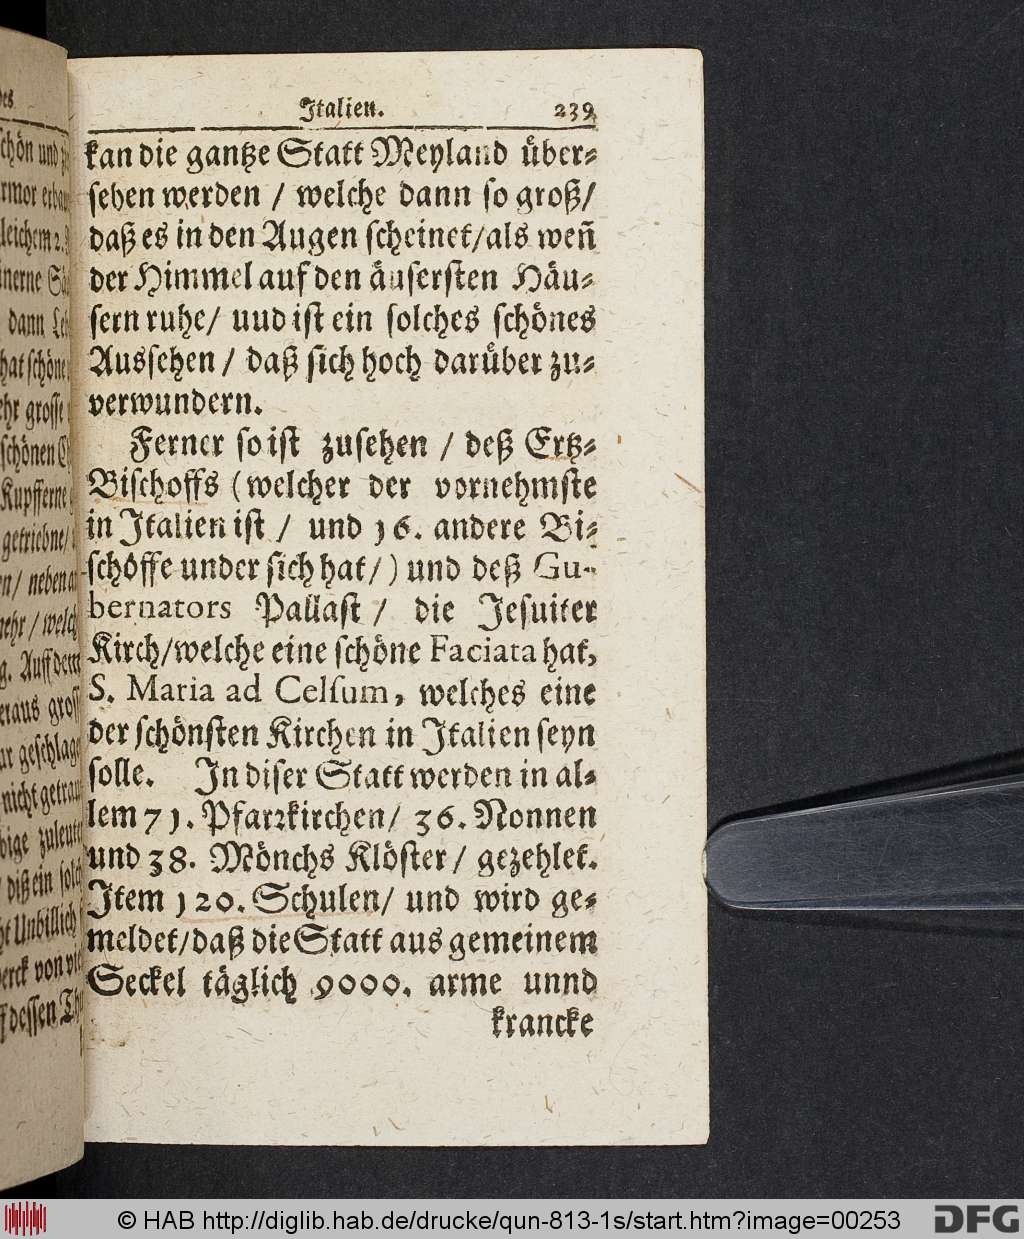 Italien. 239
kan die gantze Statt Meyland über-
sehen werden / welche dann so groß/
daß es in den Augen scheinet/als weñ
der Himmel auf den äusersten Häu-
sern ruhe/ uud ist ein solches schönes
Aussehen / daß sich hoch darüber zu-
verwundern.
Ferner so ist zusehen / deß Ertz-
Bischoffs (welcher der vornehmste
in Italien ist / und 16. andere Bi-
schöffe under sich hat/) und deß Gu-
bernators Pallast / die Jesuiter
Kirch/welche eine schöne Faciata hat,
S. Maria ad Celsum, welches eine
der schönsten Kirchen in Italien seyn
solle. In diser Statt werden in al-
lem 71. Pfarrkirchen/ 36. Nonnen
und 38. Mönchs Klöster/ gezehlet.
Item 120. Schulen/ und wird ge-
meldet/daß die Statt aus gemeinem
Seckel täglich 9000. arme unnd
krancke
schön und
dann
hat schöne
ehr grosse
schönen
Kupfferne
getriebne/
neben
mehr / welch
Auff dem
eraus gros
geschlage
nicht getrau
zuleut
diß ein solch
Unbillich
werck von
dessen
© HAB http://diglib.hab.de/drucke/qun-813-1s/start.htm?image=00253
DFG